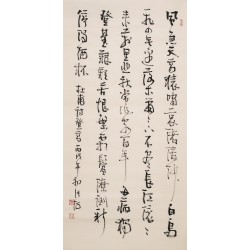 風急天高猿嘯哀渚清沙白鳥
飛回無邊落木蕭〻下不盡長江滾〻
來万里悲秋常作客百年多病獨
登臺艱難苦恨繁霜鬢潦倒新
停濁酒杯 杜甫詩登高 丙戌年